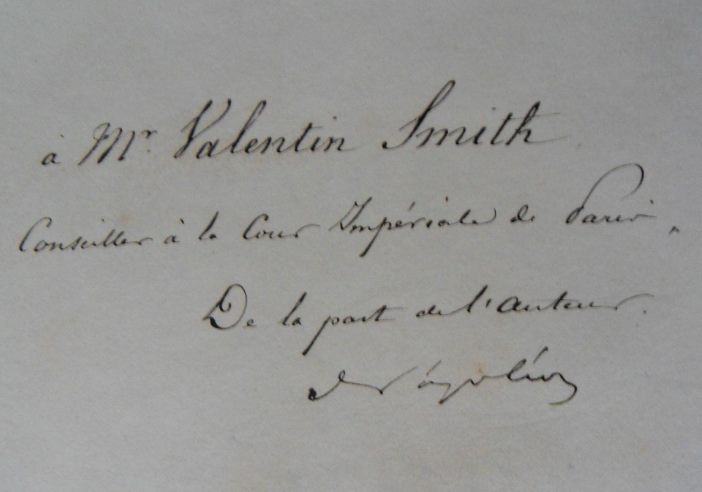 à Mr. Valentin Smith
Conseiller à la Cour Impériale de Paris,
De la part de l'auteur.